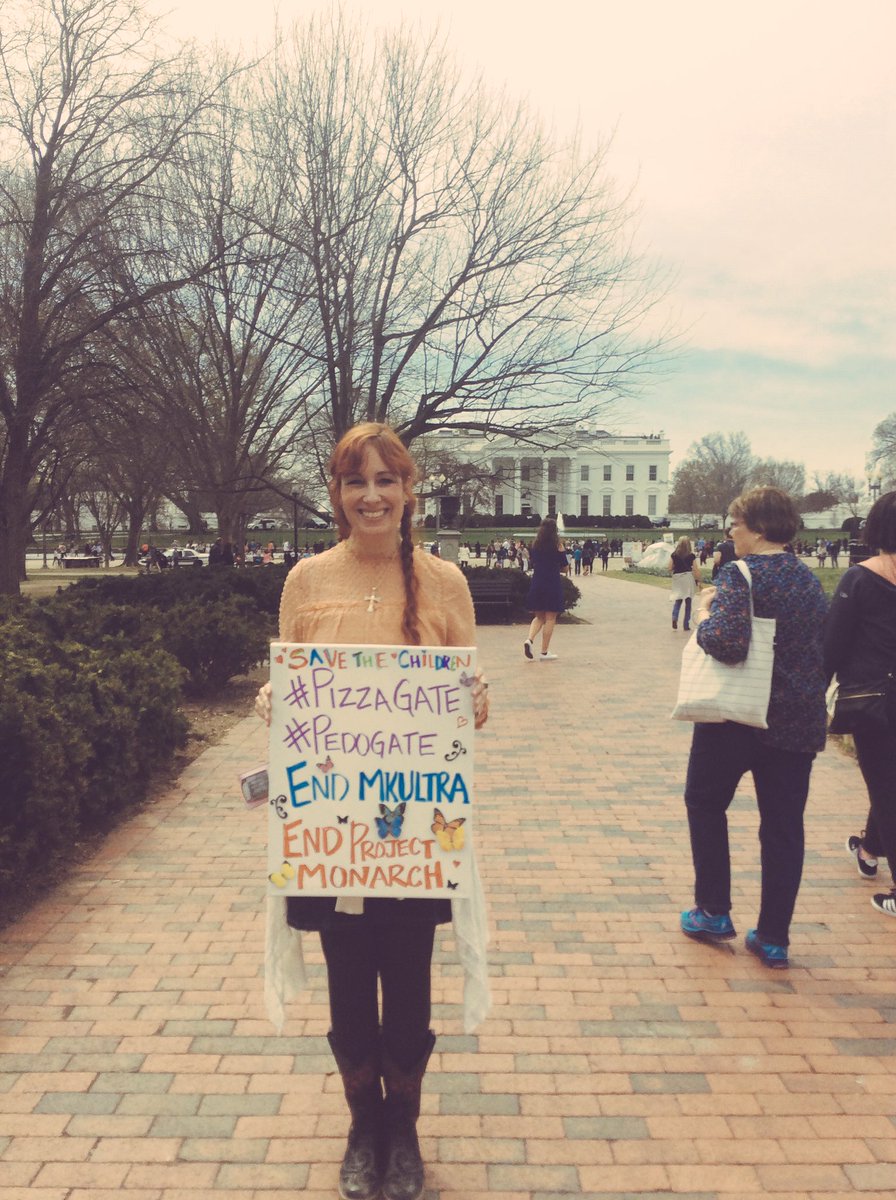 SAVE THE CHILDREN
#PIZZAGATE
#PEDOGATE
END MKULTRA
END PROJECT
MONARCH